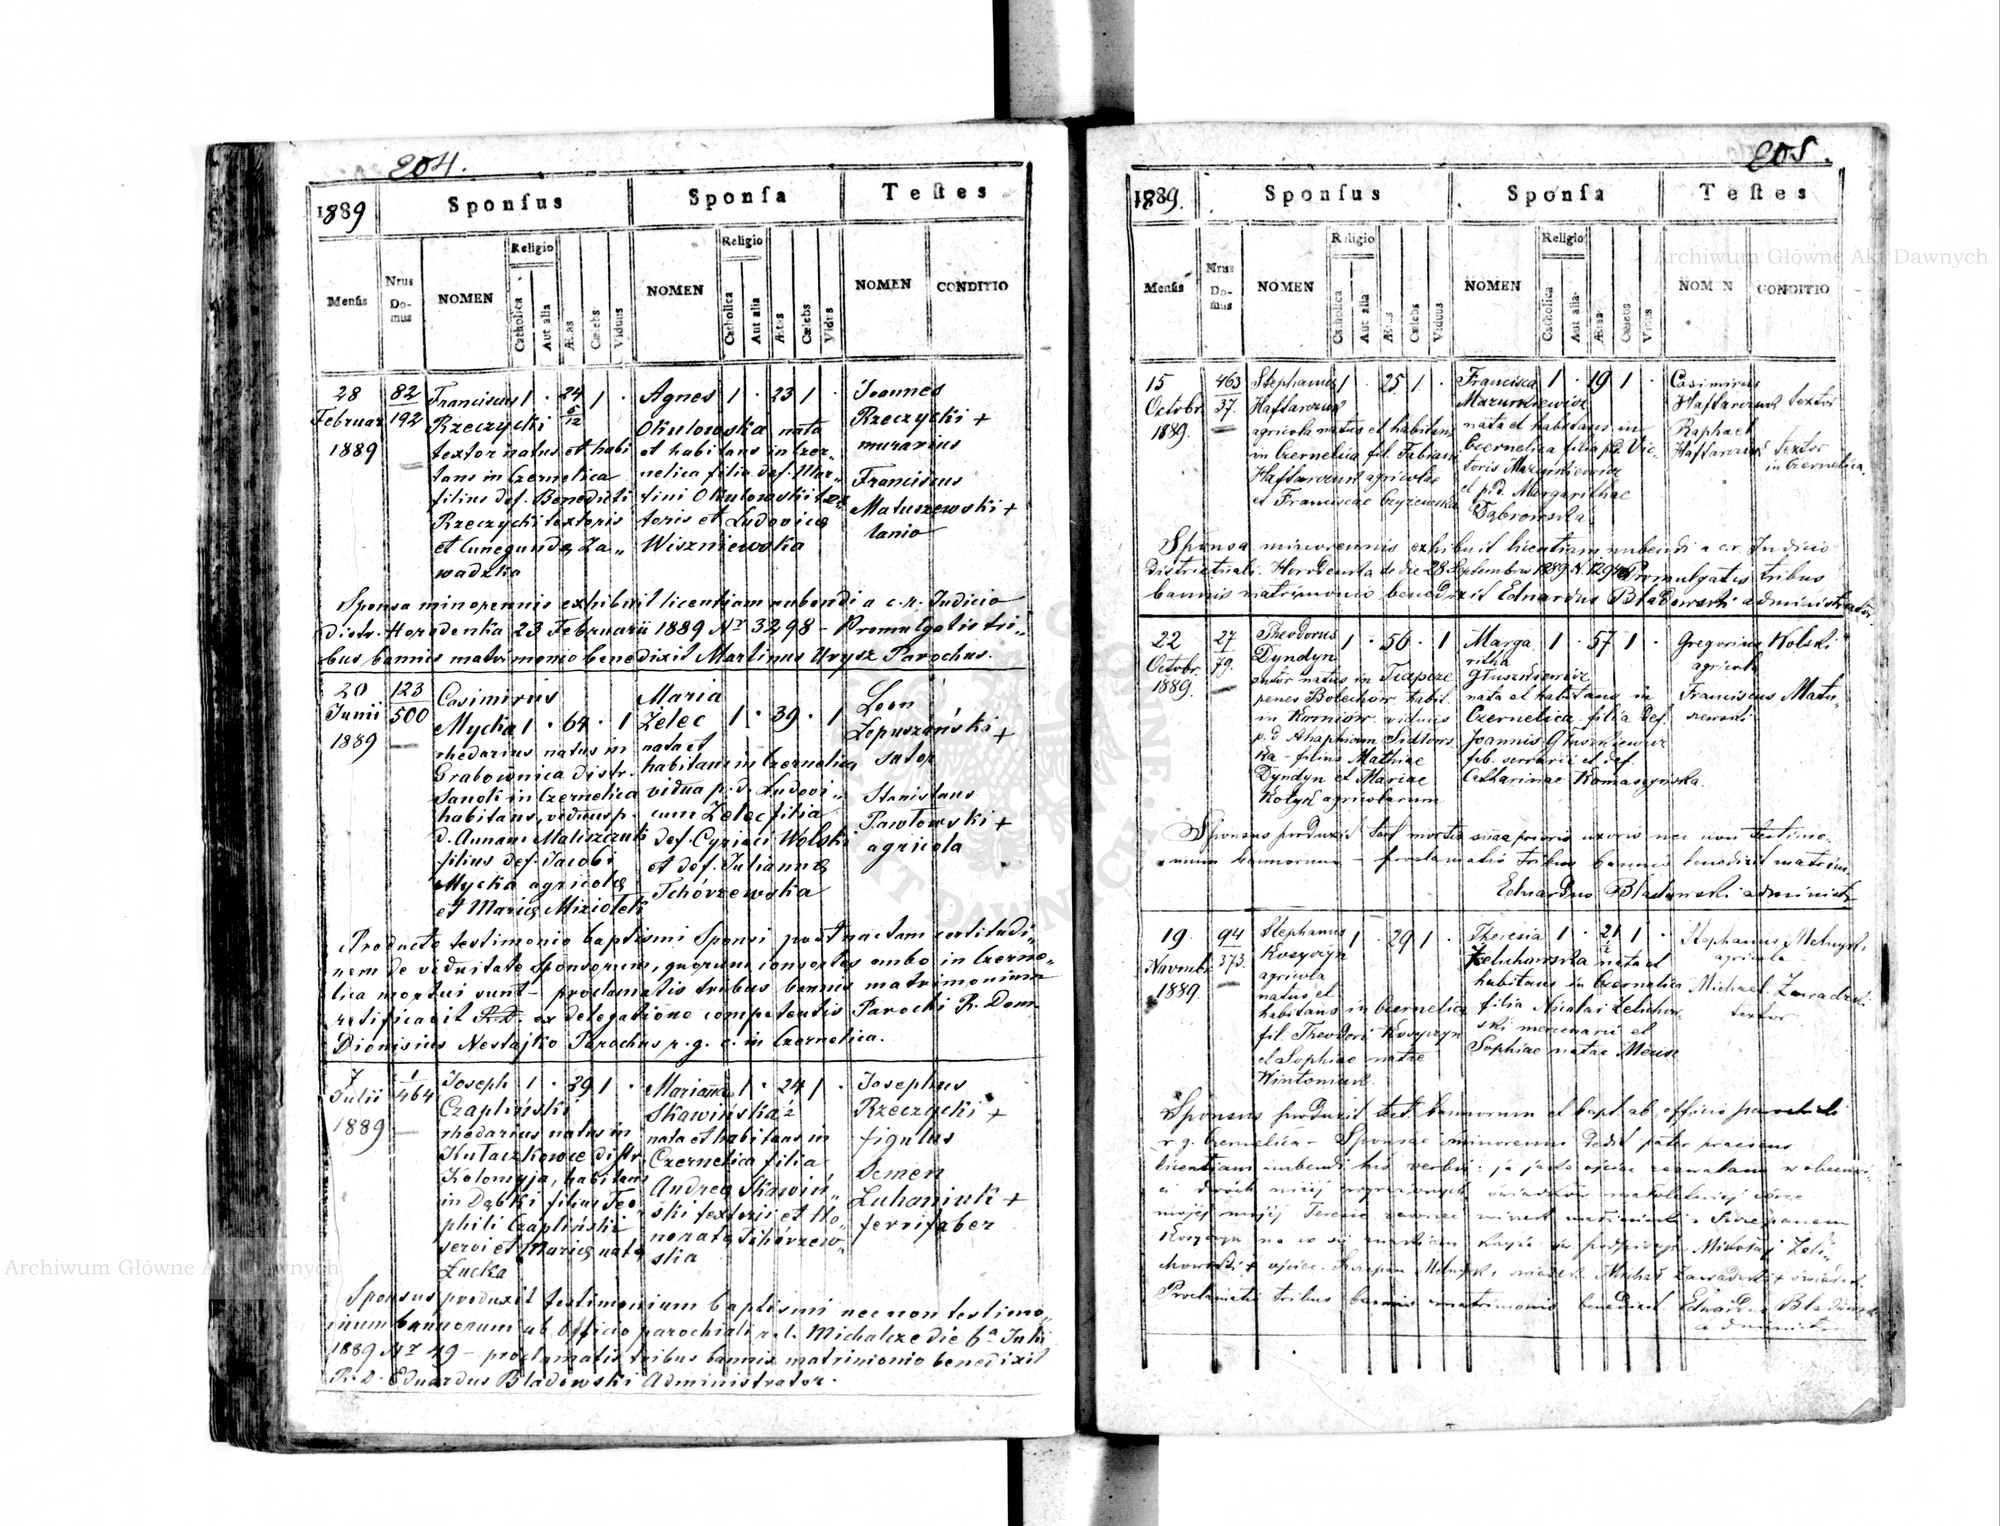 204.
1889
Sponſus
Sponſa
Teſtes
Menſis
Nrus Domus
NOMEN
Religio
Catholica
Aut alia
Ætas
Cœlebs
Viduus
NOMEN
Religio
Catholica
Aut alia
Ætas
Cœlebs
Vidua
NOMEN
CONDITIO
28
Februar
1889
82
192
Franciscus 1 · 24 5/12 1 ·
Rzeczycki
textor natus et habi
tans in Czernelica
filius def. Benedicti
Rzeczycki textoris
et Cunegundę Za„
wadzka
Agnes 1 · 23 1 ·
Okulowska nata
et habitans in Czer„
nelica filia def. Mar„
tini Okulowski tex„
toris et Ludovicę
Wiszniewska
Joannes
Rzeczycki +
murarius
Franciscus
Matuszewski +
lanio
Sponsa minorennis exhibuit licentiam nubendi a c. r. Judicio
distr. Horodenka 23 Februarii 1889 Nr 3298 – Promulgatis tri„
bus bannis matrimonio benedixit Martinus Urysz Parochus.
20
Junii
1889
123
500
Casimirus
Mycka 1 · 64 · 1
rhedarius natus in
Grabownica distr.
Sanok in Czernelica
habitans, viduus p.
d. Annam Maliszcuk
filius def. Jacobi
Mycka agricolę
et Marię Miziołek
Maria
Zelec 1 · 39 · 1
nata et
habitans in Czernelica
vidua p. d. Ludovi„
cum Zelec filia
def. Cypriani Wolski
et def. Juliannę
Tchórzewska
Leon
Łopuszański +
sutor
Stanislaus
Pawłowski +
agricola
Producto testimonio baptismi Sponsi post nactam certitudi„
nem de viduitate Sponsorum, quorum consortes ambo in Czerne„
lica mortui sunt – proclamatis tribus bannis matrimonium
ratificavit R. D. ex delegatione competentis Parochi R. Dom.
Dionisius Nestajko Parochus r. g. c. in Czernelica.
7
Julii
1889
1
464
Joseph 1 · 39 1 ·
Czapliński
rhedarius natus in
Kułaczkowce distr.
Kolomyja, habitans
in Dąbki filius Teo„
phili Czapliński
servi et Marię nata
Łucka
Marianna 1 · 24 1 ·
Skawińska ½
nata et habitans in
Czernelica filia
Andreę Skawiń„
ski textoris et Ho„
norata Tchórzew„
ska
Josephus
Rzeczycki +
figulus
Demen
Łuhaniuk +
ferrifaber
Sponsus produxit testimonium baptismi nec non testimo„
nium bannorum ab Officio parochiali r. l. Michalcze die 6ª Julii
1889 Nr 49 – proclamatis tribus bannis matrimonio benedixit
R. D. Eduardus Bladowski Administrator.
205.
1889.
Sponſus
Sponſa
Teſtes
Menſis
Nrus Domus
NOMEN
Religio
Catholica
Aut alia
Ætas
Cœlebs
Viduus
NOMEN
Religio
Catholica
Aut alia
Ætas
Cœlebs
Vidua
NOMEN
CONDITIO
15
Octobr.
1889.
463
37.
Stephanus 1 · 25 1 ·
Haftarczuk
agricola natus et habitans
in Czernelica fil. Fabiani
Haftarczuk agricolae
et Franciscae Czyżewska
Francisca 1 · 19 1 ·
Mazurkiewicz
nata et habitans in
Czernelica filia p.d. Vic„
toris Mazurkiewicz
et p.d. Margarithae
Dąbrowska
Casimirus
Haftarczuk textor
Raphael
Haftarczuk textor
in Czernelica.
Sponsa minorennis exhibuit licentiam nubendi a c.r. Judicio
Districtuali Horodenka de die 28 Septembris 1889 N. Promulgatis tribus
bannis matrimonio benedixit Eduardus Bladowski administrator
22
Octobr.
1889.
27
79.
Theodorus 1 · 50 · 1
Dyndyn
sutor natus in
penes Bolechow habit.
in Korniow viduus
p.d.
filius Mathiae
Dyndyn et Mariae
Kołyk agricolarum
Marga 1 · 57 1 ·
ritha
Głuszkiewicz
nata et habitans in
Czernelica filia def.
Joannis Głuszkiewicz
fab. serrarii et def.
Catharinae Romaszyńska.
Gregorius Wolski
agricola
Franciscus Matu„
szewski
Sponsus produxit test. mortis suae prioris uxoris nec non testimo„
nium bannorum – proclamatis tribus bannis benedixit matrim.
Eduardus Bladowski administr.
19.
Novmbr
1889.
94
373.
Stephanus 1 · 29 1 ·
Kosyczyn
agricola
natus et
habitans in Czernelica
fil. Theodori Kosyczyn
et Sophiae natae
Wintoniuk.
Theresia 1 · 21 ½ 1 ·
Zelichowska nata et
habitans in Czernelica
filia Nicolai Zelichow
ski mercenarii et
Sophiae natae
Stephanus Melnyk
agricola
Michael Zawadzki
textor
Sponsus produxit test. bannorum et bapt. ab officio parochiali
r. g. Czernelica – Sponsae minorenni dedit pater praesens
licentiam nubendi his verbis: ja jako ojciec zezwalam w obecnoś„
ci dwóch niżej wyrażonych świadków małoletniej córce
mojej Teresie zawrzeć małżeński z Szczepanem
Kosyczyn na co się podpisuję Mikołaj Zeli„
chowski + ojciec. Szczepan Melnyk świadek Michał Zawadzki + świadek
Proclamatis tribus bannis matrimonio benedixit Eduardus Bladowski
administr.
Archiwum Główne Akt Dawnych
Archiwum Główne Akt Dawnych